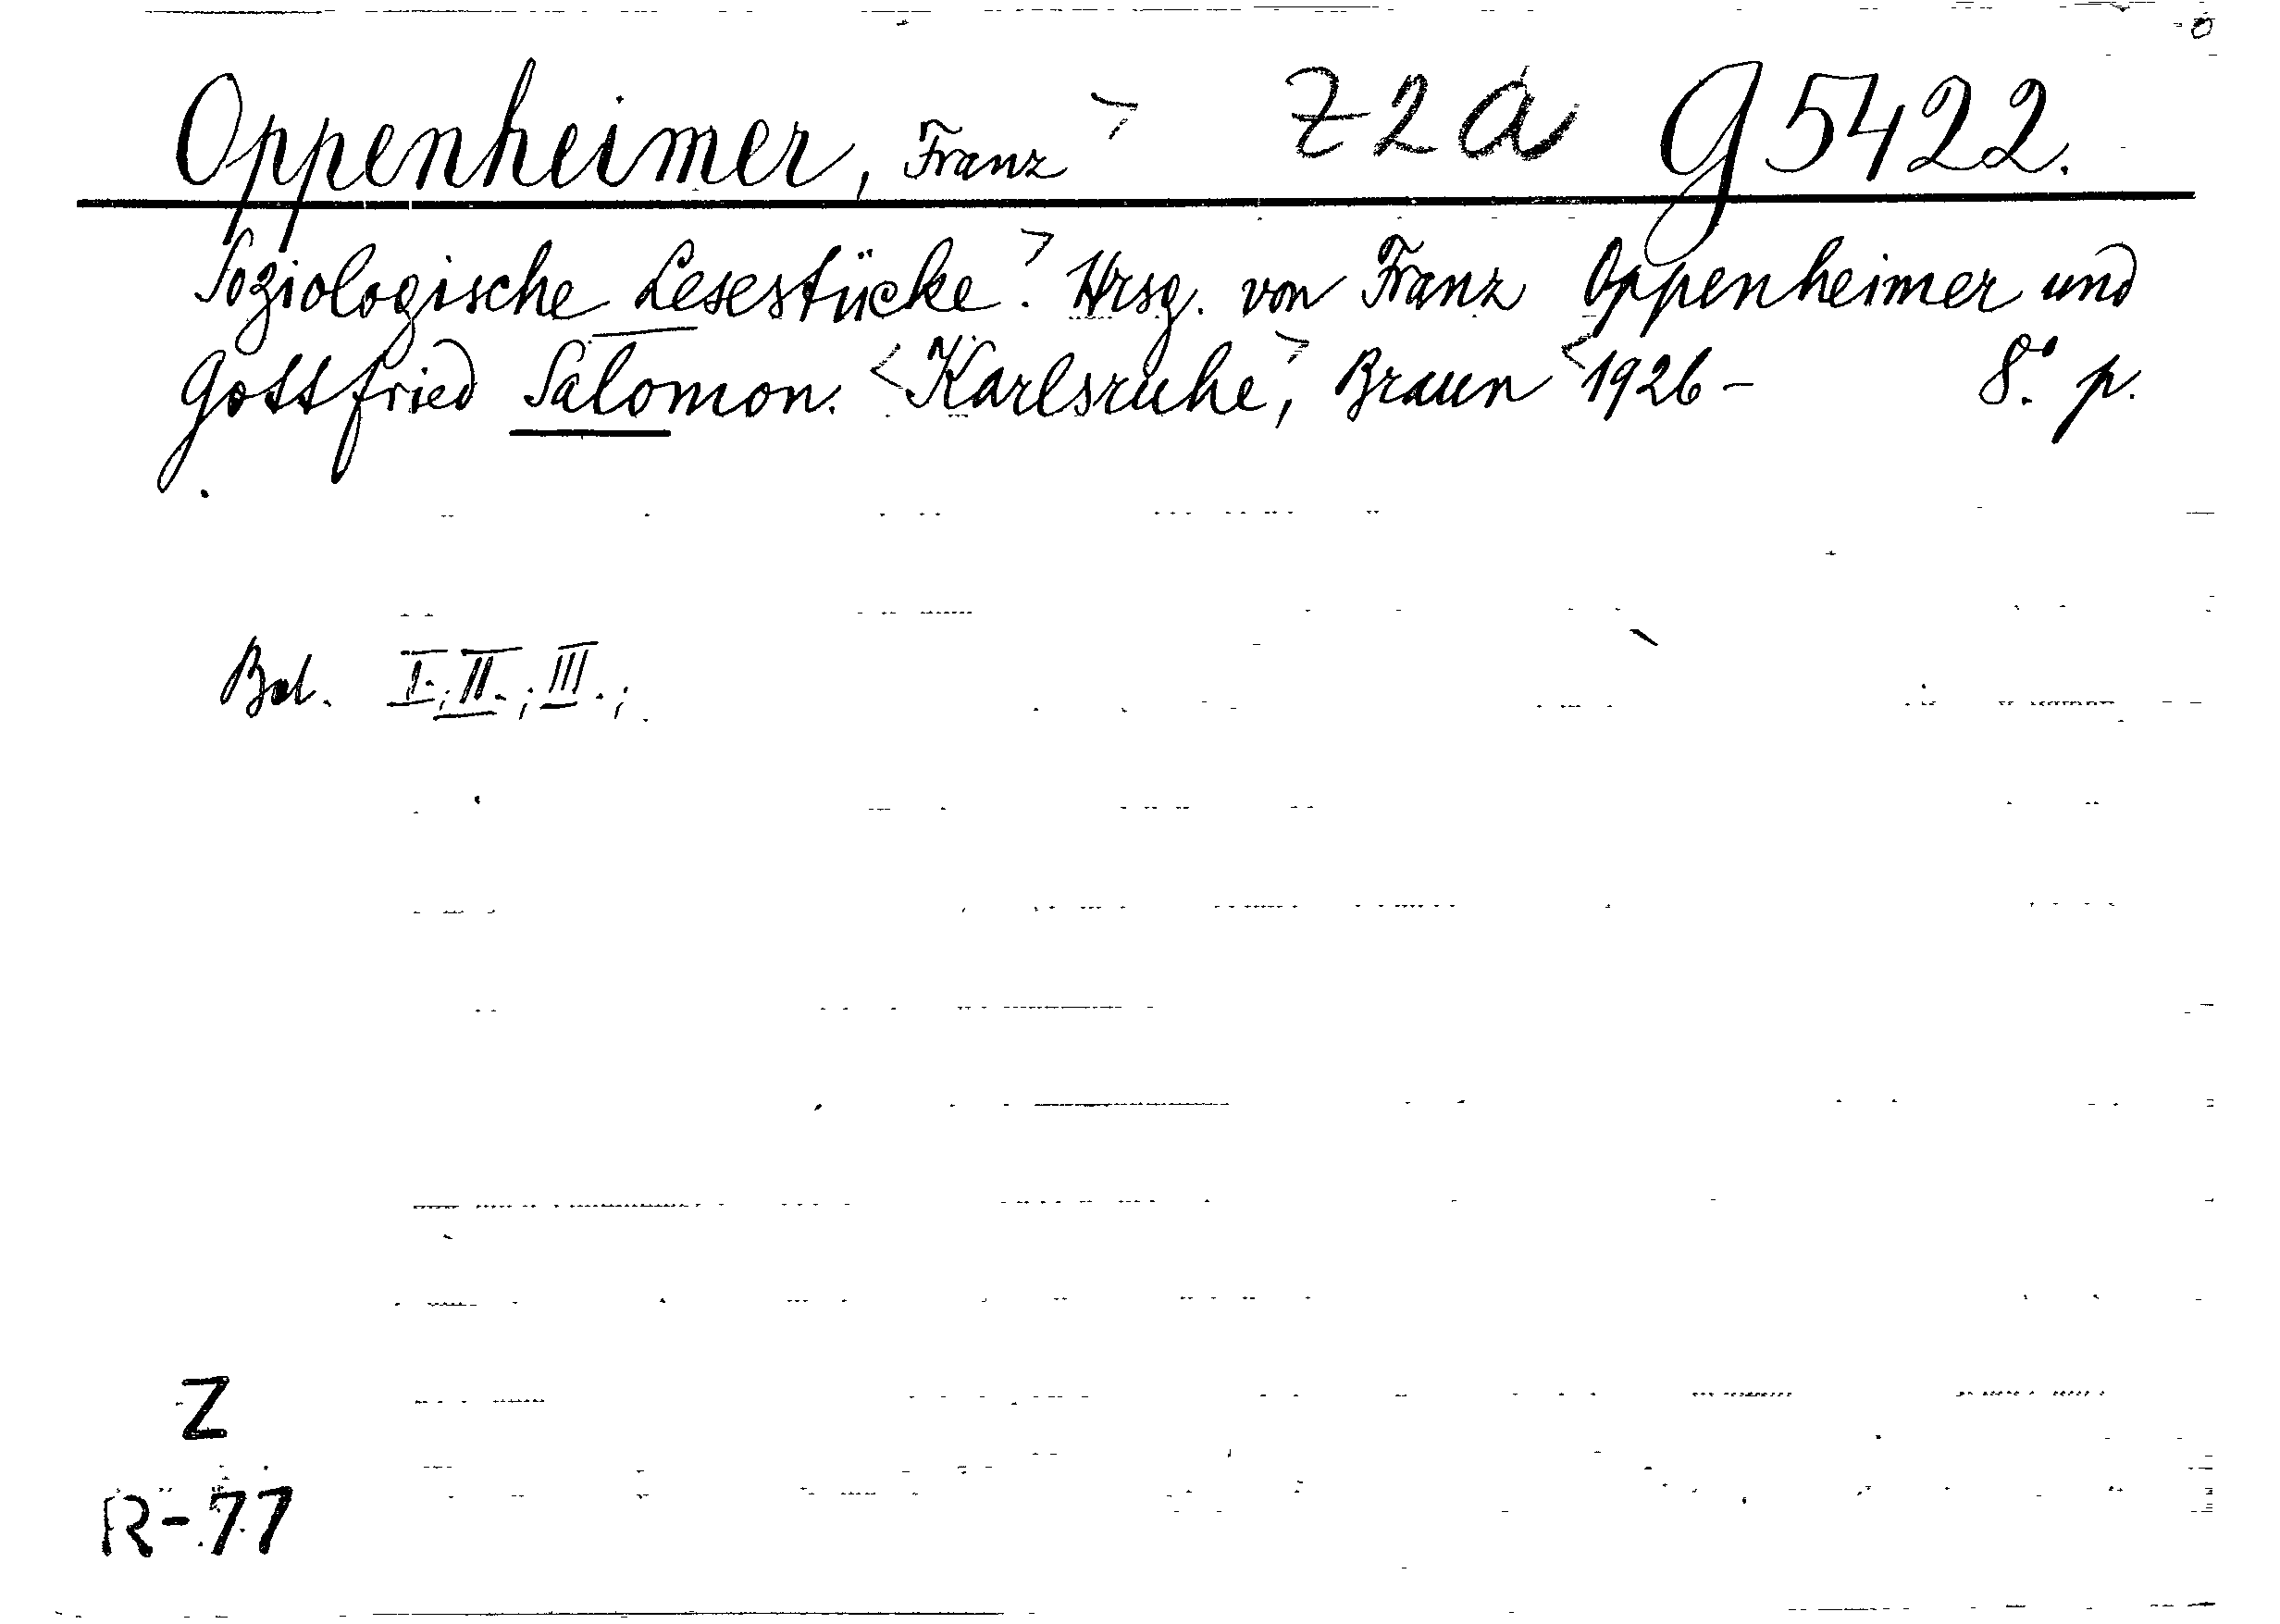 Oppenheimer, Franz > Z2a G 5422.
Soziologische Lesestücke.> Hrsg. von Franz Oppenheimer und
Gottfried Salomon. <Karlsruhe,> Braun <1926- 8.° p.
Bd. I.; II.; III.;
Z
R-77